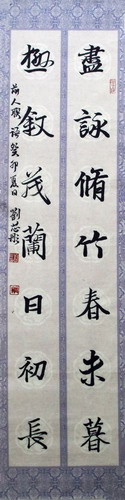 盡詠脩竹春未暮
極敘茂蘭日初長
前人聯語癸卯夏日 劉